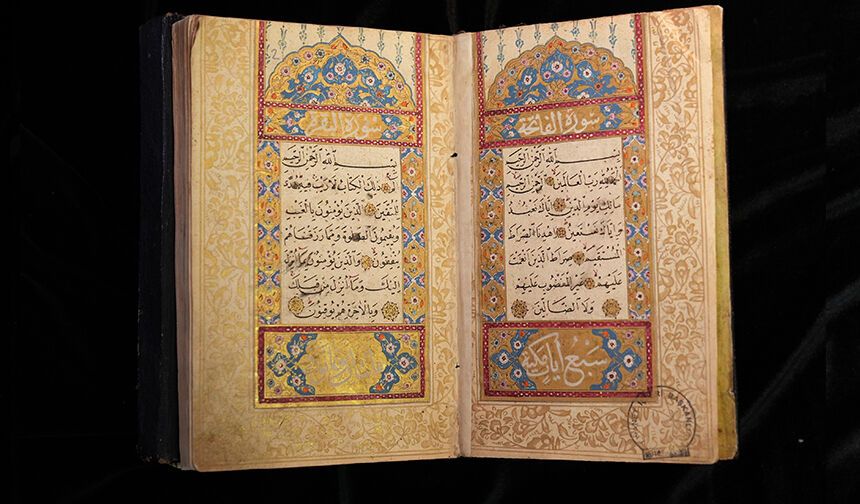 سورة الفاتحة
بسم الله الرحمن الرحيم
الحمد لله رب العالمين الرحمن الرحيم
مالك يوم الدين اياك نعبد
واياك نستعين اهدنا الصراط
المستقيم صراط الذين انعمت
عليهم غير المغضوب عليهم
ولا الضالين
سبع ايات مكية
سورة البقرة
بسم الله الرحمن الرحيم
الم ذلك الكتاب لا ريب فيه هدى
للمتقين الذين يؤمنون بالغيب
ويقيمون الصلوة ومما رزقناهم
ينفقون والذين يؤمنون بما انزل
اليك وما انزل من قبلك
وبالاخرة هم يوقنون